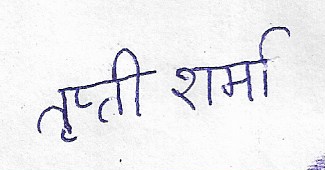 तृप्ती शर्मा